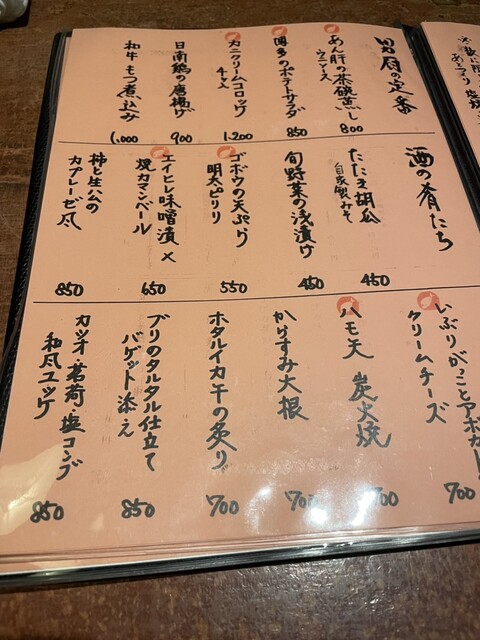 男厨の定番
あん肝の茶碗蒸し
ウニソース
800
博多のポテトサラダ
850
カニクリームコロッケ
1,200
日南鶏の唐揚げ
900
和牛もつ煮込み
1,000
酒の肴たち
たたき胡瓜
自家製みそ
450
旬野菜の浅漬け
450
ゴボウの天ぷら
明太ピリリ
550
エイヒレ味噌漬 ×
焼カマンベール
650
柿と生ハムの
カプレーゼ風
850
いぶりがっことアボカド
クリームチーズ
700
ハモ天 炭火焼
700
からすみ大根
700
ホタルイカ干の炙り
700
ブリのタルタル仕立て
バゲット添え
850
カツオ・茗荷・塩コンブ
和風ユッケ
850